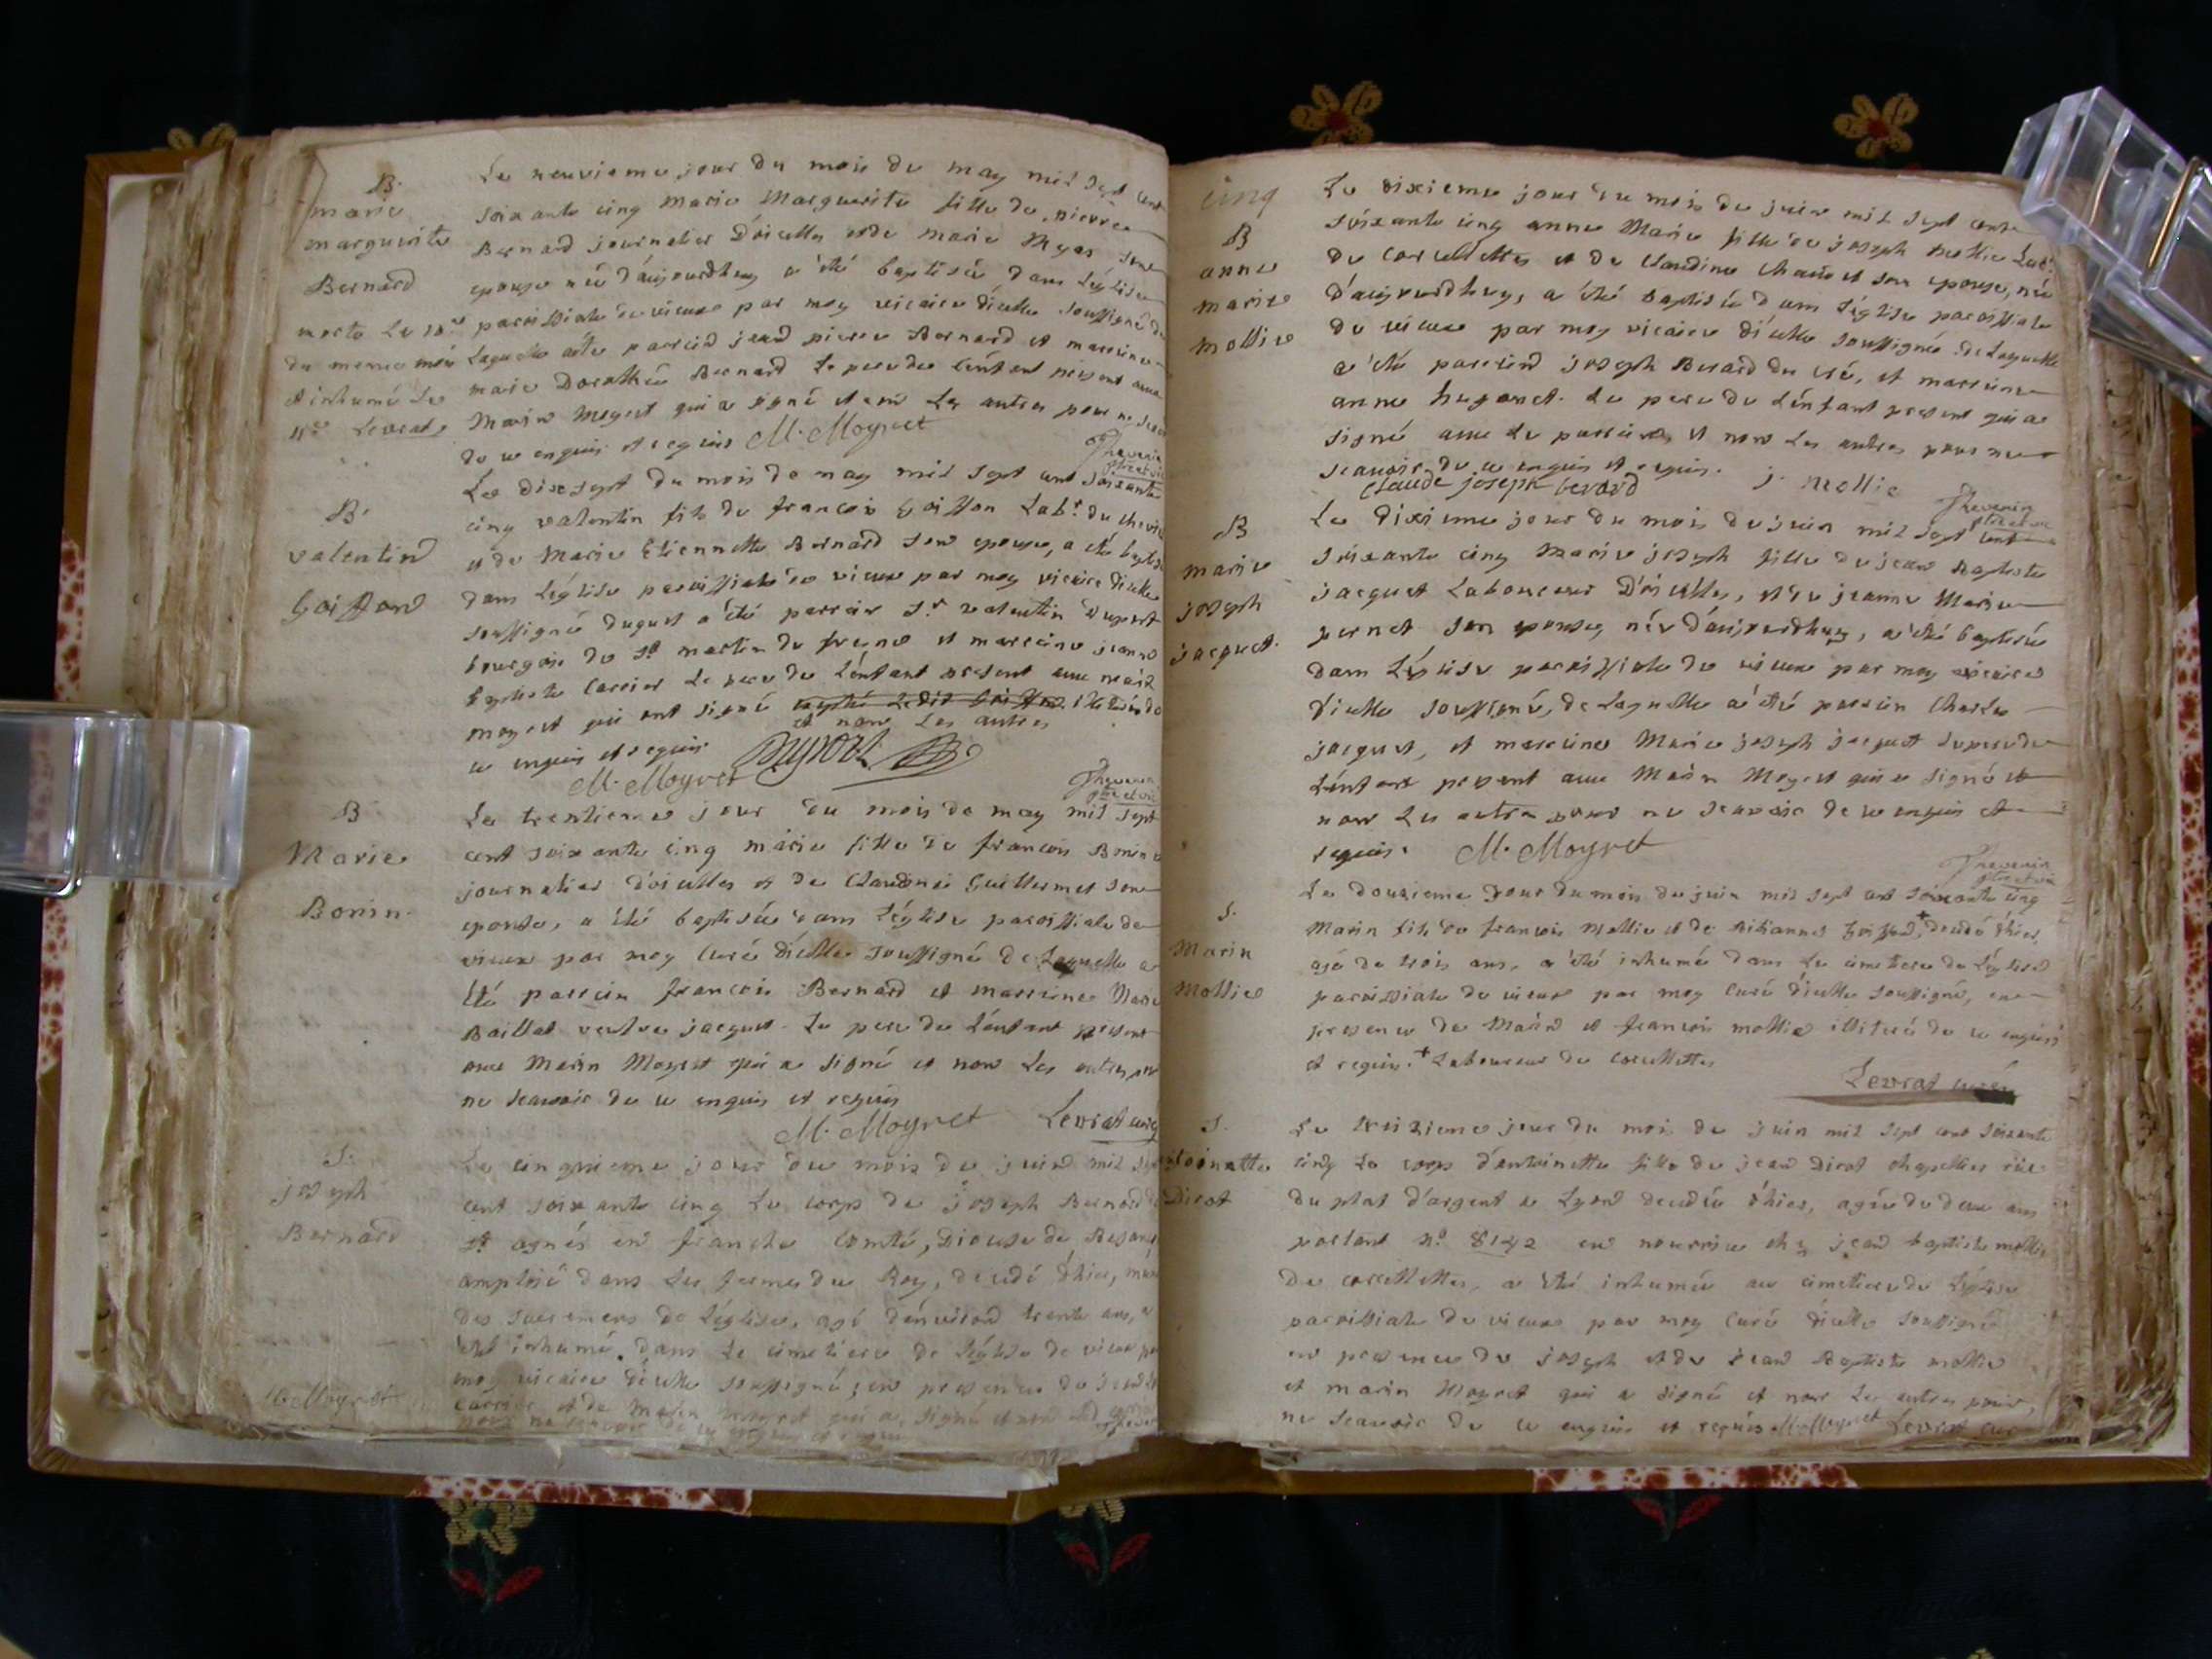 B.
marie
marguerite
Bernard
morte le 10e
du meme mois
et inhumé le
11e Levrat
Le neuvieme jour du mois de may mil sept cent
soixante cinq marie Marguerite fille de pierre
Bernard journalier d'oiselles et de marie
epouse née d'aujourdhuy a été baptisée dans L'église
paroissiale de vieux par moy vicaire d'icelle soussigné de
Laquelle a été parrein jean pierre Bernard et marreine
marie Dorothée Bernard Le pere de L'enfant present avec
Marin Moyret qui a signé et non Les autres pour ne
de ce enquis et requis M. Moyret
Thevenin
B.
valentin
Goiffon
Le dix sept du mois de may mil sept cent soixante
cinq valentin fils de francois Goiffon Labr. du
et de Marie Etiennette Bernard son epouse, a été baptisé
dans L'église paroissiale de vieux par moy vicaire d'icelle
soussigné duquel a été parrein sr valentin Duport
bourgois de st martin du fresne et marreine jeanne
baptiste Carrier Le pere de L'enfant present avec marin
moyret qui ont signé
et non Les autres
ce enquis et requis Duport
M. Moyret
Thevenin
B
Marie
Bonin.
Le trentieme jour du mois de may mil sept
cent soixante cinq marie fille de francois Bonin
journalier d'oiselles et de Claudine Guillermet son
epouse, a été baptisée dans L'église paroissiale de
vieux par moy Curé d'icelle soussigné de Laquelle a
été parrein francois Bernard et marreine Marie
Baillat veuve jacquet. Le pere de L'enfant present
avec Marin Moyret qui a signé et non Les autres pour
ne scavoir de ce enquis et requis
M. Moyret Levrat curé
S.
joseph
Bernard
Le cinquieme jour du mois de juin mil sept
cent soixante cinq Le corps de joseph Bernard de
st agnés en franche Comté, Diocese de Besancon
emploié dans Les fermes du Roy, decedé d'hier, muni
des sacremens de L'église, agé d'environ trente ans, a
été inhumé dans Le cimetiere de L'église de vieux par
moy vicaire d'icelle soussigné, en presence de
Carrier et de Marin Moyret qui a signé et non
pour ne scavoir de ce enquis et requis
M. Moyret
cinq
B
anne
marie
mollie
Le dixieme jour du mois de juin mil sept cent
soixante cinq anne Marie fille de joseph mollie Labr.
de corcelettes et de Claudine Chanet son epouse, née
d'aujourdhuy, a été baptisée dans L'église paroissiale
de vieux par moy vicaire d'icelle soussigné de Laquelle
a été parrein joseph Berard et marreine
anne hugonet. Le pere de L'enfant present qui a
signé avec Le parrein, et non Les autres pour ne
scavoir de ce enquis et requis. j. mollie
Claude joseph berard
Thevenin
B
marie
joseph
jacquet.
Le dixieme jour du mois de juin mil sept cent
soixante cinq Marie joseph fille de jean Baptiste
jacquet Laboureur d'oiselles, et de jeanne Marie
pernet son epouse, née d'aujourdhuy, a été baptisée
dans L'église paroissiale de vieux par moy vicaire
d'icelle soussigné, de Laquelle a été parrein Charles
jacquet, et marreine Marie joseph jacquet Le pere de
L'enfant present avec Marin Moyret qui a signé et
non Les autres pour ne scavoir de ce enquis et
requis. M. Moyret
Thevenin
S.
Marin
Mollie
Le douzieme jour du mois de juin mil sept cent soixante cinq
Marin fils de francois Mollie et de Goiffon,+ decedé d'hier,
agé de trois ans, a été inhumé dans Le cimetiere de L'église
paroissiale de vieux par moy Curé d'icelle soussigné, en
presence de Marin et francois mollie illitéré de ce enquis
et requis. + Laboureur de corcelettes
Levrat curé
S.
toinette
Dirot
Le treizieme jour du mois de juin mil sept cent soixante
cinq Le corps d'antoinette fille de jean Dirot chapellier rüe
du plat d'argent a Lyon decedée d'hier, agée de deux ans
portant no. 8142 en nourrice chez jean baptiste mollie
de corcelettes, a été inhumée au cimetiere de L'église
paroissiale de vieux par moy Curé d'icelle soussigné
en presence de joseph et de jean Baptiste mollie
et marin Moyret qui a signé et non Les autres pour
ne scavoir de ce enquis et requis M. Moyret Levrat curé